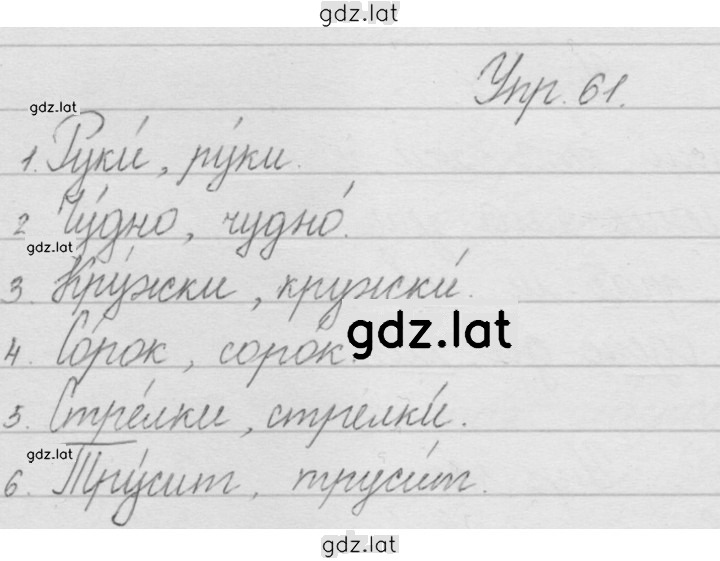 gdz.lat
Упр. 61.
gdz.lat
1. Руки́, ру́ки.
2 Чу́дно, чудно́.
gdz.lat
3. Кру́жки, кружки́.
gdz.lat
4. Со́рок, соро́к.
5. Стре́лки, стрелки́.
gdz.lat
6. Тру́сит, труси́т.
gdz.lat